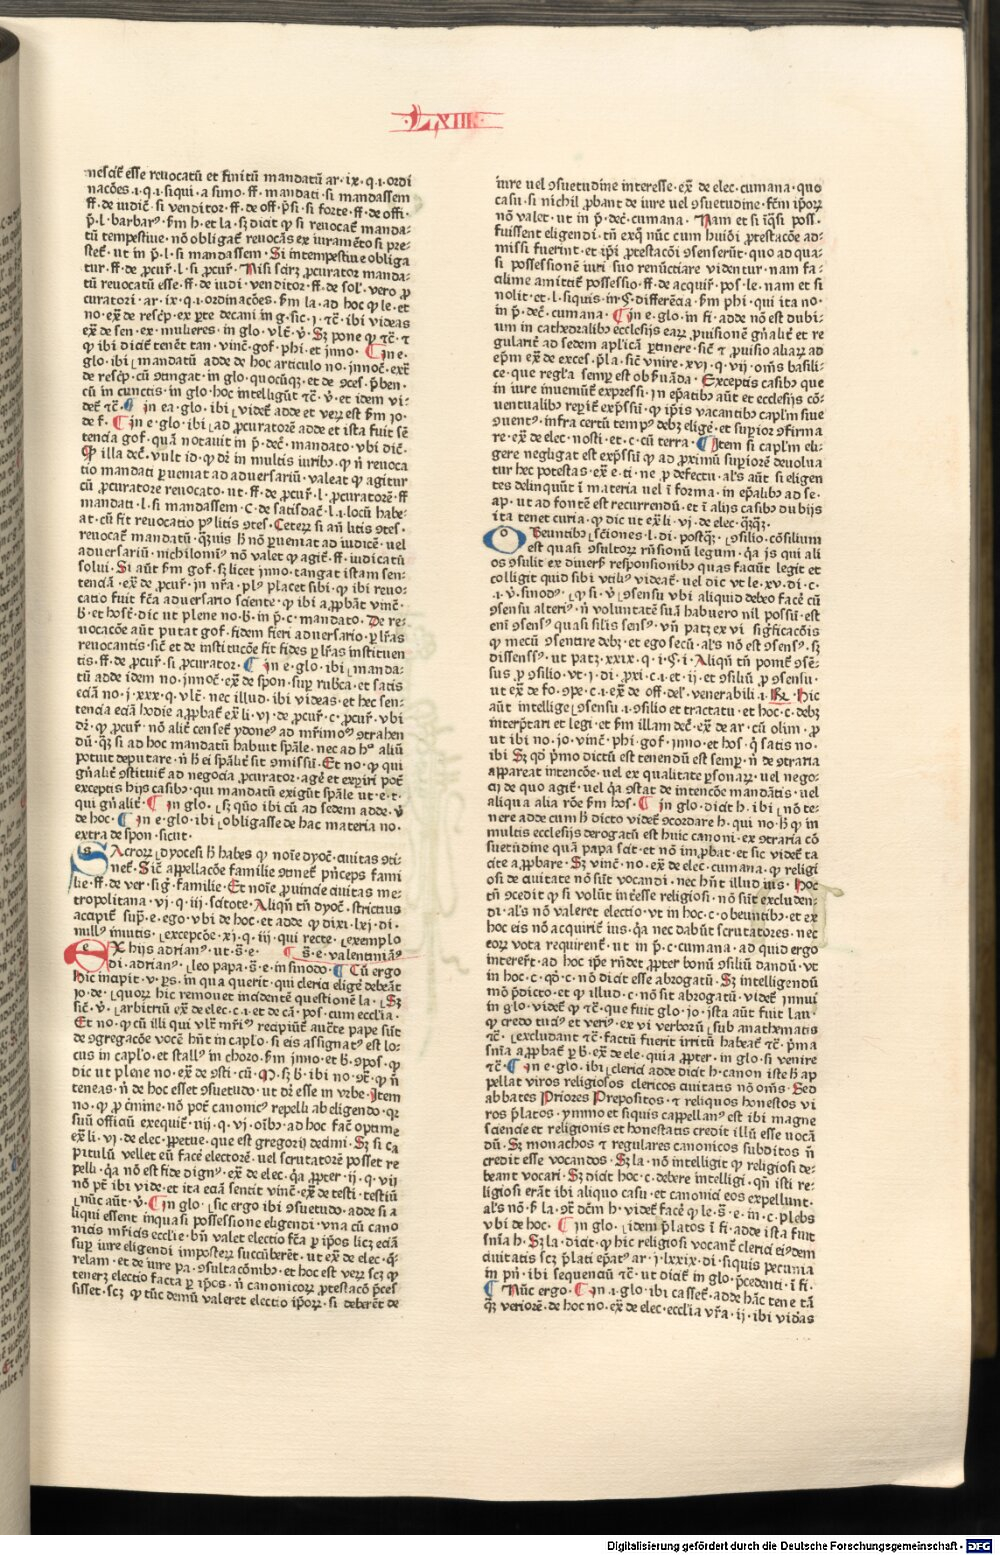 ·LXIII·
nesciẽ esse reuocatũ et finitũ mandatũ ar·ix·q·i·ordi
nacões·i·q·i·siqui·a simo·ff·mandati·si mandassem
ff·de iudic̃·si venditor·ff·de off·p̃si·si forte·ff·de offi·
p̃·l·barbarꝰ·fm h·et la·sꝫ dicit ꝙ si reuocat̃ manda-
tũ tempestiue·nõ obligat̃ reuocãs ex iuramẽto si pre-
stet̃·ut in p̃·l·si mandassem·Si intempestiue obliga
tur·ff·de ꝓcur̃·l·si ꝓcur̃·Nisi scirꝫ ꝓcurator manda-
tũ reuocatũ esse·ff·de iudi·venditor·ff·de sol·vero ꝓ
curatori·ar·ix·q·i·ordinacões·fm la·ad hoc ꝙ le·et
no·ex̃ de rescp̃·ex ꝑte decani in g·sic·j·tc̃·ibi videas
ex̃ de sen·ex·mulieres·in glo·vlt̃·v̾·Sꝫ pone ꝙ tc̃·⁊
ꝙ ibi dicit̃ tenẽt tan·vinc̃·gof·phi·et jnno·¶ jn e·
glo·ibi mandatũ adde de hoc articulo no·jnnoc̃·ext̃
de rescp̃·cũ ꝯtingat·in glo·quocũqꝫ·et de ꝯces·p̃ben·
cũ in cunctis·in glo·hoc intelligũt tc̃·v̾·et idem vi-
det̃ tc̃·¶ jn ea·glo·ibi videt̃ adde et verꝫ est fm jo·
de f·¶ jn e·glo·ibi ad ꝓcuratorẽ adde et ista fuit sẽ
tencia gof·quã notauit in p̃·dec̃·mandato·vbi dic̃·
ꝙ illa dec̃·vult id·ꝙ dr̃ in multis iuribꝫ·ꝙ ñ reuoca
tio mandati ꝑueniat ad aduersariũ·valeat ꝙ agitur
cũ ꝓcuratore reuocato·ut·ff·de ꝓcur̃·l·ꝓcuratorẽ·ff
mandati·l·si mandassem·C·de satisdac̃·l·i·locũ habe-
at·cũ fit reuocatio pꝰ litis ꝯtes·Ceterꝫ si añ litis ꝯtes·
reuocat̃ mandatũ·qꝫuis h̃ nõ ꝑueniat ad iudicẽ·uel
aduersariũ·nichilominꝰ nõ valet ꝙ agit̃·ff·iudicatũ
solui·Si aũt fm gof·sꝫ licet jnno·tangat istam sen-
tenciã·ex̃·de ꝓcur̃·jn nr̃a·plꝰ placet sibi·ꝙ ibi reuo-
catio fuit fc̃a aduersario sciente·ꝙ ibi aꝓbãt vinc̃·
b̃·et host̃·dic ut plene no·b̃·in p̃·c·mandato·De re-
uocacõe aũt putat gof·fidem fieri aduersario·ꝑ lr̃as
reuocantis·sic̃·et de institucõe fit fides ꝑ lr̃as instituen
tis·ff·de ꝓcur̃·si ꝓcurator·¶ jn e·glo·ibi manda-
tũ adde idem no·jnnoc̃·ex̃ de spon·suꝑ rubr̃ca·et satis
eciã no·j·xxx·q·vlt̃·nec illud·ibi videas·et hec sen-
tencia eciã hodie aꝓbat̃ ex̃ li·vj·de ꝓcur̃·c·ꝓcur̃·vbi
dr̃·ꝙ ꝓcur̃·nõ alit̃ censet̃ ydoneꝰ ad mr̃imoꝰ ꝯtrahen
dũ·qꝫ si ad hoc mandatũ habuit sp̃ale·nec ad hᵒ aliũ
potuit deputare·ñ h̃ ei sp̃alit̃ sit ꝯmissũ·Et no·ꝙ qui
gñalit̃ ꝯstituit̃ ad negocia ꝓcurator·agẽ et exꝑiri pot̃
exceptis hijs casibꝰ·qui mandatũ exigũt sp̃ale ut·e·t·
qui gñalit̃·¶ jn glo·sꝫ q̃uo ibi cũ ad sedem adde·v̾
de hoc·¶ jn e·glo·ibi obligasse de hac materia no·
extra de spon·sicut·
SAcrorꝫ dyocesi h̃ habes ꝙ noĩe dyoc̃·ciuitas ꝯti-
net̃·Sic̃ appellacõe familie ꝯtinet̃ pñceps fami
lie·ff·de ver·sig̃·familie·Et noĩe ꝓuincie ciuitas me-
tropolitana·vj·q·iij·scitote·Aliqñ tñ dyoc̃·strictius
accipit̃ supꝰ·e·ego·vbi de hoc·et adde ꝙ dixi·lxj·di·
nullꝰ inuitis·excepcõe·xj·q·iij·qui recte·exemplo
EX hijs adrianꝰ·ut·s̃·e·¶ s̃·e·valentinianꝰ
di·adrianꝰ·leo papa·s̃·e·in sinodo·¶ Cũ ergo
hic incipit·v̾·ꝑs·in qua querit·qui clerici eligẽ debeãt
jo·de·quorꝫ hic remouet incidentẽ questionẽ la·Sꝫ
sic̃·v̾·arbitriũ ex̃ de elec·c·i·et de cã·pos·cum ecclia·
Et no·ꝙ cũ illi qui vlr̃ mr̃iꝰ recipiũt̃ aucte pape sũt
de ꝯgregacõe vocẽ hñt in caplo·si eis assignatꝰ est lo-
cus in caplo·et stallꝰ in choro·fm jnno et b̃·ꝯpos·ꝙ
dic ut plene no·ex̃ de ꝯsti·cũ·M·sꝫ b̃·ibi no·ꝯt̃·ꝙ ñ
teneas·ñ de hoc esset ꝯsuetudo·ut dr̃ esse in vrbe·Item
no·ꝙ ꝓ crimine·nõ pot̃ canonicꝰ repelli ab eligendo·qꝛ
suũ officiũ exequit̃·iiij·q·vj·oĩbꝰ·ad hoc fac̃ optime
ex̃ li·vj·de elec·ꝑpetue·que est gregorij decimi·Sꝫ si ca
pitulũ vellet eũ facẽ electorẽ·uel scrutatorẽ posset re
pelli·qꝛ nõ est fide dignꝰ·ex̃ de elec·qꝛ ꝓpter·ij·q·vij
nõ pr̃·ibi vide·et ita eciã sentit vinc̃·ex̃ de testi·testiũ
nũc aũt·v̾·¶ jn glo·sic ergo ibi ꝯsuetudo·adde si a
liqui essent inquasi possessione eligendi·vna cũ cano
nicis mr̃icis ecclie·bñ valet electio fc̃a ꝑ ip̃os licꝫ eciã
suꝑ iure eligendi imposterꝫ succũberẽt·ut ex̃ de elec·q̃-
relam·et de iure pa·ꝯsultacõibꝰ·et hoc est verꝫ scꝫ ꝙ
tenerꝫ electio facta ꝑ ip̃os·ñ canonicorꝫ ꝓtestacõ p̃ces
sisset·scꝫ ꝙ tũc demũ valeret electio ip̃orꝫ·si deberẽt de
iure uel ꝯsuetudine interesse·ex̃ de elec·cumana·quo
casu·si nichil ꝓbant de iure uel ꝯsuetudine·fc̃m ip̃orꝫ
nõ valet·ut in p̃·dec̃·cumana·Nam et si ip̃si poss·
fuissent eligendi·tñ exq̃ nũc cum huiõi ꝓtestacõe ad-
missi fuerint·et ip̃i ꝓtestacõi ꝯsenserũt·quo ad qua-
si possessionẽ iuri suo renũciare videntur·nam fa-
cilime amittit̃ possessio·ff·de acquir̃·pos·le·nam et si
nolit·et·l·siquis·in §·differẽcia·fm phi·qui ita no·
in p̃·dec̃·cumana·¶ jn e·glo·in fi·adde nõ est dubi-
um in cathedralibꝰ ecclesijs earꝫ ꝓuisionẽ gñalit̃ et re
gularit̃ ad sedem aplicã ꝑtinere·sic̃ ⁊ ꝓuisio aliarꝫ ad
ep̃m ex̃ de exces·p̃la·sic̃ vnire·xvj·q·vij·oms̃ basili-
ce·que regl̃a semꝑ est obr̃uãda·Exceptis casibꝰ que
in iure inueniũt̃ expressi·jn ep̃atibꝰ aũt et ecclesijs cõ
uentualibꝰ reꝑit̃ exp̃ssũ·ꝙ ip̃is vacantibꝰ capl̃m siue
ꝯuentꝰ·infra certũ tempꝰ debꝫ eligẽ·et suꝑior ꝯfirma
re·ex̃ de elec·nosti·et·c·cũ terra·¶ Item si capl̃m eli-
gere negligat est exp̃ssũ ꝙ ad ꝓximũ suꝑiorẽ deuolua
tur hec potestas·ex̃·e·ti·ne ꝓ defectu·als̃ aũt si eligen
tes delinquũt ĩ materia uel ĩ forma·in ep̃alibꝰ ad se·
ap·ut ad fontẽ est recurrendũ·et ĩ alijs casibꝰ du bijs
ita tenet curia·ꝙ dic ut ex̃ li·vj·de elec·qꝫqꝫ·
OBeuntibꝰ sc̃iones·l·di·postqꝫ·ꝯsilio cõsilium
est quasi ꝯsultorꝫ rñsionũ legum·q̃a js qui ali
os ꝯsulit ex diuers̃ responsionibꝰ quas faciũt legit et
colligit quid sibi vtiliꝰ videat̃·uel dic vt le·xv·di·c·
·i·v̾·sinodꝰ·ꝙ si·v̾·ꝯsensu vbi aliquid debeo facẽ cũ
ꝯsensu alteriꝰ·ñ voluntatẽ suã habuero nil possũ·est
eni ꝯsensꝰ quasi silis sensꝰ·vñ patꝫ ex vi significacõis
ꝙ mecũ ꝯsentire debꝫ·et ego secũ·als̃ nõ est ꝯsensꝰ·sꝫ
dissensꝰ·ut patꝫ·xxix·q·i·§·i·Aliqñ tñ ponit̃ ꝯsẽ-
sus ꝓ ꝯsilio·vt·j·di·ꝓxi·c·i·et·ij·et ꝯsiliũ ꝓ ꝯsensu·
ut ex̃ de fo·ꝯpe·c·i·ex̃ de off·del·venerabili·i·R̃·Hic
aũt intellige ꝯsensu·i·ꝯsilio et tractatu·et hoc·c·debꝫ
interp̃tari et legi·et fm illam dec̃·ex̃ de ar·cũ olim·ꝓ
ut ibi no·jo·vinc̃·phi·gof·jnno·et hos·q̃ satis no·
ibi·Sꝫ qᵒ p̃mo dictũ est tenendũ est semꝑ·ñ de ꝯtraria
appareat intencõe·uel ex qualitate ꝑsonarꝫ·uel nego-
cij de quo agit̃·uel q̃a ꝯstat de intencõe mandãtis·uel
aliqua alia rõe fm hos·¶ jn glo·dicit h·ibi nõ te-
nere adde cum h̃ dicto videt̃ ꝯcordare h·qui no·h̃ ꝙ in
multis ecclesijs derogatũ est huic canoni·ex ꝯtraria cõ
suetudine quã papa scit·et nõ imꝓbat·et sic videt̃ ta
cite aꝓbare·Sꝫ vinc̃·no·ex̃ de elec·cumana·ꝙ religi
osi de ciuitate nõ sũt vocandi·nec hñt illud ius·Hoc
tñ ꝯcedit ꝙ si volũt int̃esse religiosi·nõ sũt excluden-
di·als̃ nõ valeret electio·vt in hoc·c·obeuntibꝰ·et ex
hoc eis nõ acquirit̃ ius·q̃a nec dabũt scrutatores·nec
eorꝫ vota requirent̃·ut in p̃·c·cumana·ad quid ergo
interer̃t·ad hoc ip̃e rñdet ꝓpter bonũ ꝯsiliũ dandũ·vt
in hoc·c·qᵒ·c·nõ dicit esse abrogatũ·Sꝫ intelligendũ
mõ p̃dicto·et ꝙ illud·c·nõ sit abrogatũ·videt̃ jnnui
in glo·videt̃ ꝙ tc̃·que fuit glo·jo·ista aũt fuit lau·
ꝙ credo tuciꝰ et veriꝰ·ex vi verborũ sub anathematis
tc̃·excludant tc̃·factũ fuerit irritũ habeat̃ tc̃·p̃ma
snĩa aꝓbat̃ ꝑ b̃·ex̃ de ele·quia ꝓpter·in glo·si venire
tc̃·¶ jn e·glo·ibi clerici adde dicit h·canon iste h̃ ap
pellat viros religiosos clericos ciuitatis nõ oms̃·Sed
abbates Priores Prepositos·⁊ reliquos honestos vi
ros p̃latos·ymmo et siquis cappellanꝰ est ibi magne
sciencie et religionis et honestatis credit illũ esse uocã
dũ·Sꝫ monachos ⁊ regulares canonicos subditos ñ
credit esse vocandos·Sꝫ la·nõ intelligit ꝙ religiosi de-
beant vocari·Sꝫ dicit hoc·c·debere intelligi·qñ isti re-
ligiosi erãt ibi aliquo casu·et canonici eos expellunt·
als̃ nõ·f·la·ꝯt̃ dc̃m h·videt̃ facẽ ꝙ le·s̃·e·in·c·plebs
vbi de hoc·¶ jn glo·idem p̃latos ĩ fi·adde ista fuit
snĩa h·Sꝫ la·dicit·ꝙ hic religiosi vocant̃ clerici eiꝰdem
ciuitatis scꝫ p̃lati ep̃atꝰ ar·j·lxxix·di·siquis pecunia
in pñ·ibi sequendũ tc̃·ut dicit̃ in glo·p̃cedenti·ĩ fi·
¶ Nũc ergo·¶ jn·i·glo·ibi casset̃·adde hãc tene tã
qꝫ veriorẽ·de hoc no·ex̃ de elec·ecclia vr̃a·ij·ibi vidas
Digitalisierung gefördert durch die Deutsche Forschungsgemeinschaft · DFG